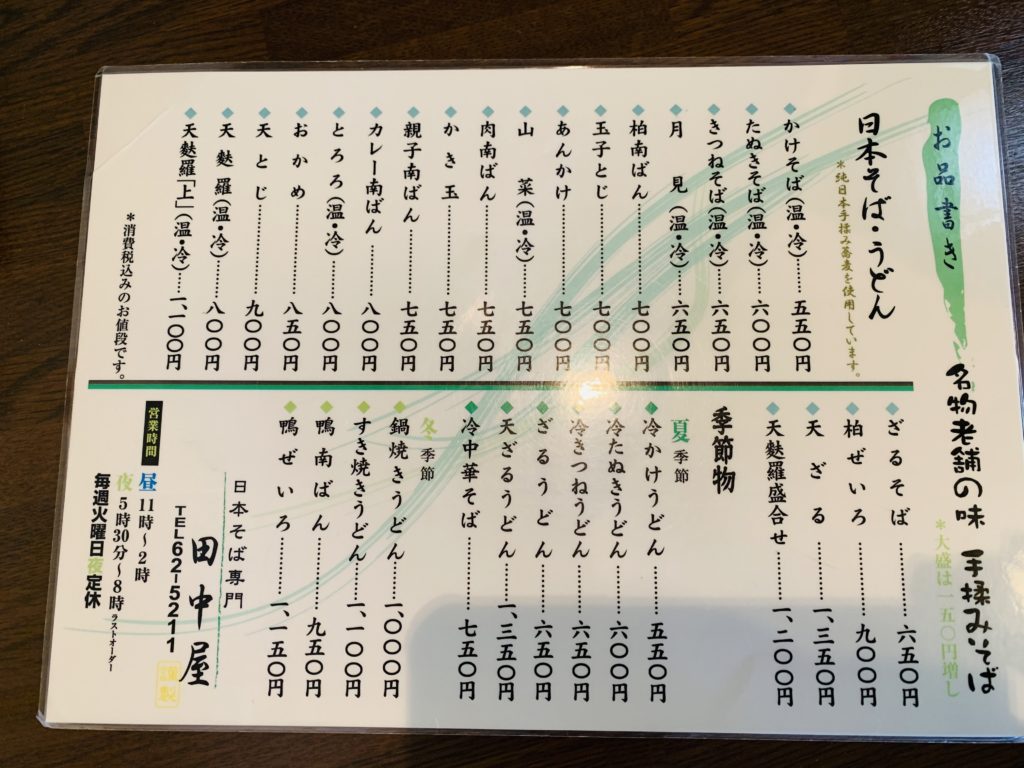 お品書き
名物老舗の味 手揉みそば
*大盛は一五〇円増し
日本そば・うどん
*純日本手揉み蕎麦を使用しています。
◆かけそば(温・冷)…五五〇円
◆たぬきそば(温・冷)…六〇〇円
◆きつねそば(温・冷)…六五〇円
◆月見(温・冷)…六五〇円
◆柏南ばん…七〇〇円
◆玉子とじ…七〇〇円
◆あんかけ…七〇〇円
◆山菜(温・冷)…七五〇円
◆肉南ばん…七五〇円
◆かき玉…七五〇円
◆親子南ばん…七五〇円
◆カレー南ばん…八〇〇円
◆とろろ(温・冷)…八〇〇円
◆おかめ…八五〇円
◆天とじ…九〇〇円
◆天麩羅(温・冷)…八〇〇円
◆天麩羅「上」(温・冷)…一、一〇〇円
*消費税込みのお値段です。
◆ざるそば…六五〇円
◆柏ぜいろ…九〇〇円
◆天ざる…一、三五〇円
◆天麩羅盛合せ…一、二〇〇円
季節物
夏季節
◆冷かけうどん…五五〇円
◆冷たぬきうどん…六〇〇円
◆冷きつねうどん…六五〇円
◆ざるうどん…六五〇円
◆天ざるうどん…一、三五〇円
◆冷中華そば…七五〇円
冬季節
◆鍋焼きうどん…一、〇〇〇円
◆すき焼きうどん…一、一〇〇円
◆鴨南ばん…九五〇円
◆鴨ぜいろ…一、一五〇円
日本そば専門
田中屋
謹製
TEL62-5211
営業時間
昼 11時〜2時
夜 5時30分〜8時 ラストオーダー
毎週火曜日夜定休